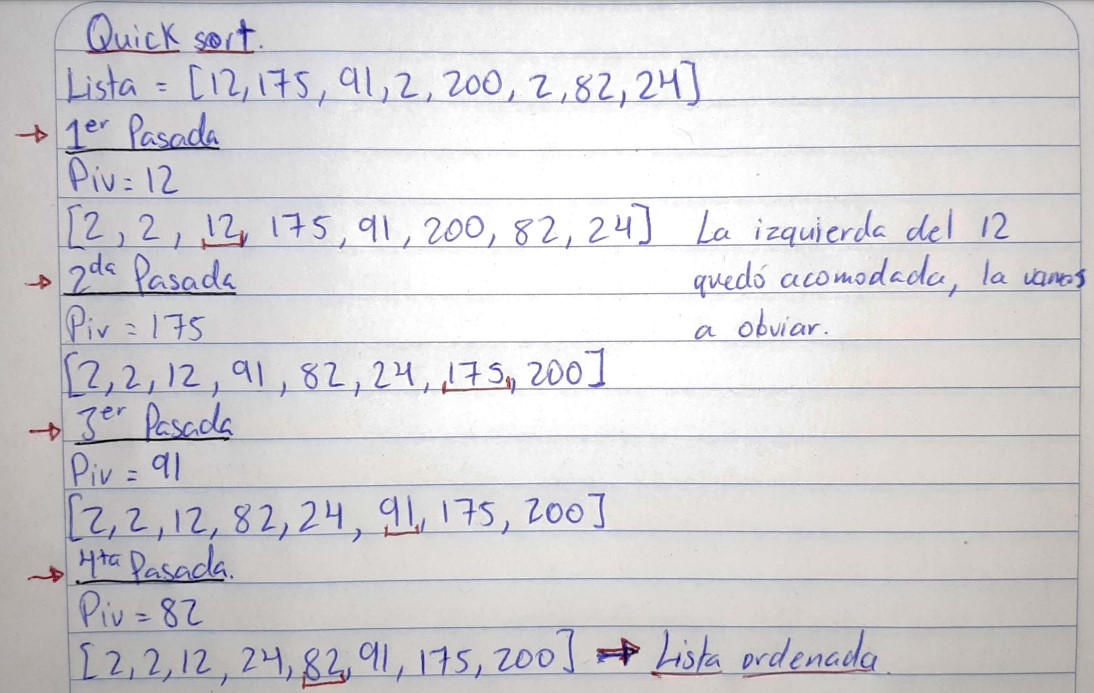 Quick sort.
Lista = [12, 175, 91, 2, 200, 2, 82, 24]
→ 1er Pasada
Piv = 12
[2, 2, 12, 175, 91, 200, 82, 24] La izquierda del 12
→ 2da Pasada quedó acomodada, la vamos
Piv = 175 a obviar.
[2, 2, 12, 91, 82, 24, 175, 200]
→ 3er Pasada
Piv = 91
[2, 2, 12, 82, 24, 91, 175, 200]
→ 4ta Pasada.
Piv = 82
[2, 2, 12, 24, 82, 91, 175, 200] → Lista ordenada